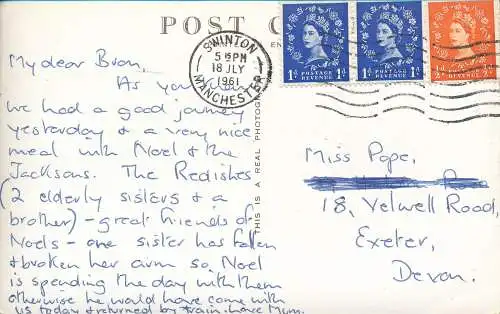 POST C
My dear Bron,
As you
we had a good journey
yesterday & a very nice
meal with Noel & the
Jacksons. The Redishes
(2 elderly sisters & a
brother) - great friends of
Noels - one sister has fallen
& broken her arm so Noel
is spending the day with them
otherwise he would have come with
us today & returned by train. Love Mum.
SWINTON
5 15 PM
18 JLY
1961
MANCHESTER
THIS IS A REAL PHOTOG
1D POSTAGE REVENUE 1D
1D POSTAGE REVENUE 1D
POSTAGE REVENUE
Miss Pope,
18, Velwell Road,
Exeter,
Devon.